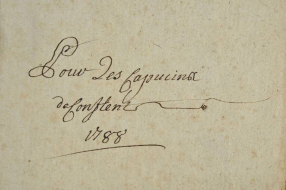 Pour Les Capucins
de Conflent
1788